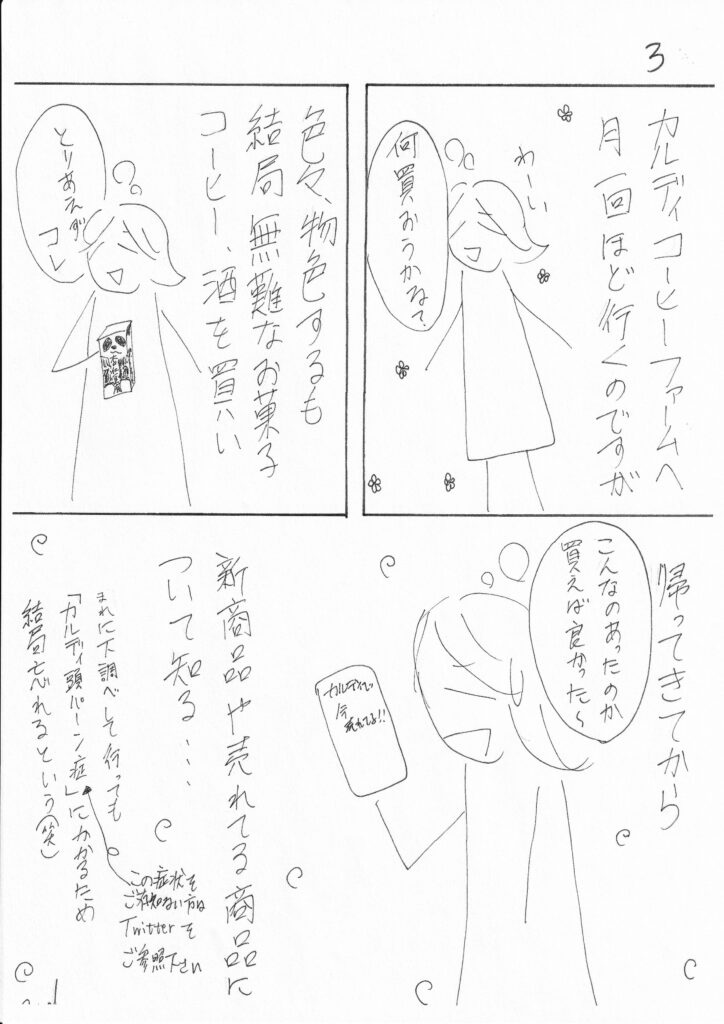 3
カルディコーヒーファームへ
月一回ほど行くのですが
わーい
何買おうかな?
色々、物色するも
結局 無難なお菓子
コーヒー、酒を買い
とりあえず
コレ
帰ってきてから
こんなのあったのか
買えば良かった〜
カルディで
今
売れてるよ!!
新商品や売れてる商品に
ついて知る・・・
まれに下調べして行っても
「カルディ頭パーン症」にかかるため
結局忘れるという(笑)
この症状を
ご存知ない方は
Twitterを
ご参照下さい